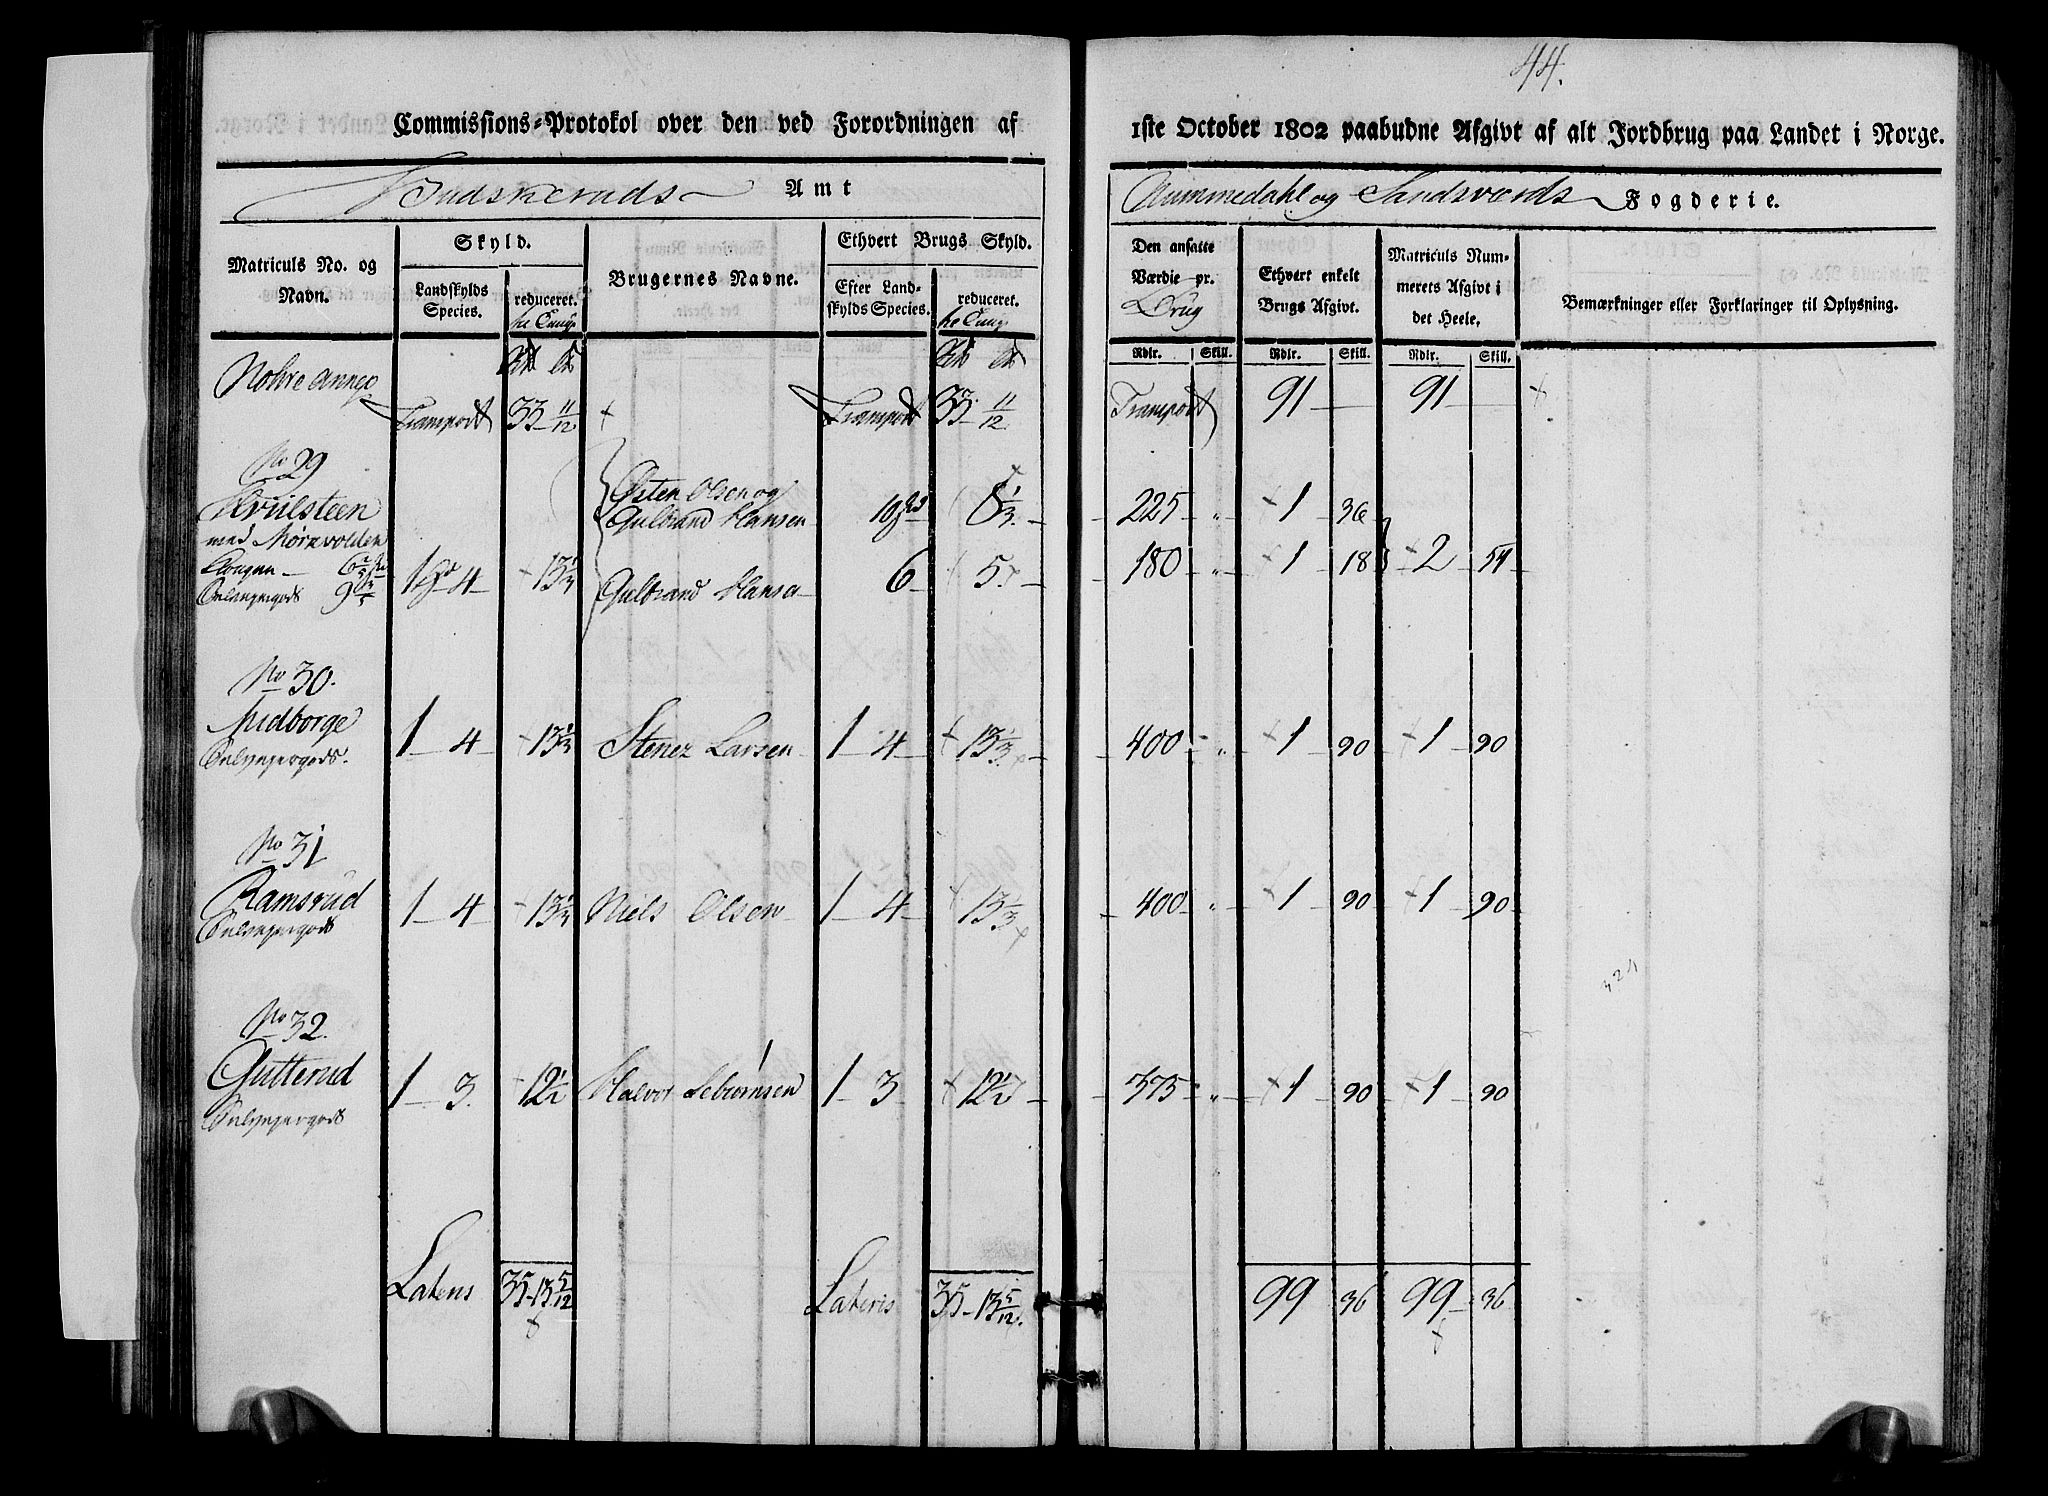 44.
Commissions-Protokol over den ved Forordningen af
1ste October 1802 paabudne Afgivt af alt Jordbrug paa Landet i Norge.
Budskeruds Amt
Nummedahl og Sandsværds Fogderie.
Matriculs No. og Navn.
Skyld.
Landskylds Species.
reduceret.
Brugernes Navne.
Ethvert Brugs Skyld.
Efter Landskylds Species.
reduceret.
Den ansatte Værdie pr. Brug
Ethvert enkelt Brugs Afgivt.
Matriculs Nummerets Afgivt i det Heele.
Bemærkninger eller Forklaringer til Oplysning.
Rdlr. Skill. Rdlr. Skill. Rdlr. Skill.
Transport 33 11/12 Transport 33 11/12 Transport 91 91
No 29
Hvilsteen
med
1 4 13 1/3
Østen Olsen og
Gulbrand Hansen 10 8 1/3 225 " 1 36
Gulbrand Hansen 6 5 180 " 1 18 2 54
No 30.
Midborge
Selvejergods.
1 4 13 1/3 Stener Larsen 1 4 13 1/3 400 " 1 90 1 90
No 31
Ramsrud
Selvejergods
1 4 13 1/3 Niels Olsen 1 4 13 1/3 400 " 1 90 1 90
No 32.
Gutterud
Selvejergods
1 3 12 1/2 Halvor 1 3 12 1/2 375 " 1 90 1 90
Lateris 35 13 5/12 Lateris 35 13 5/12 99 36 99 36